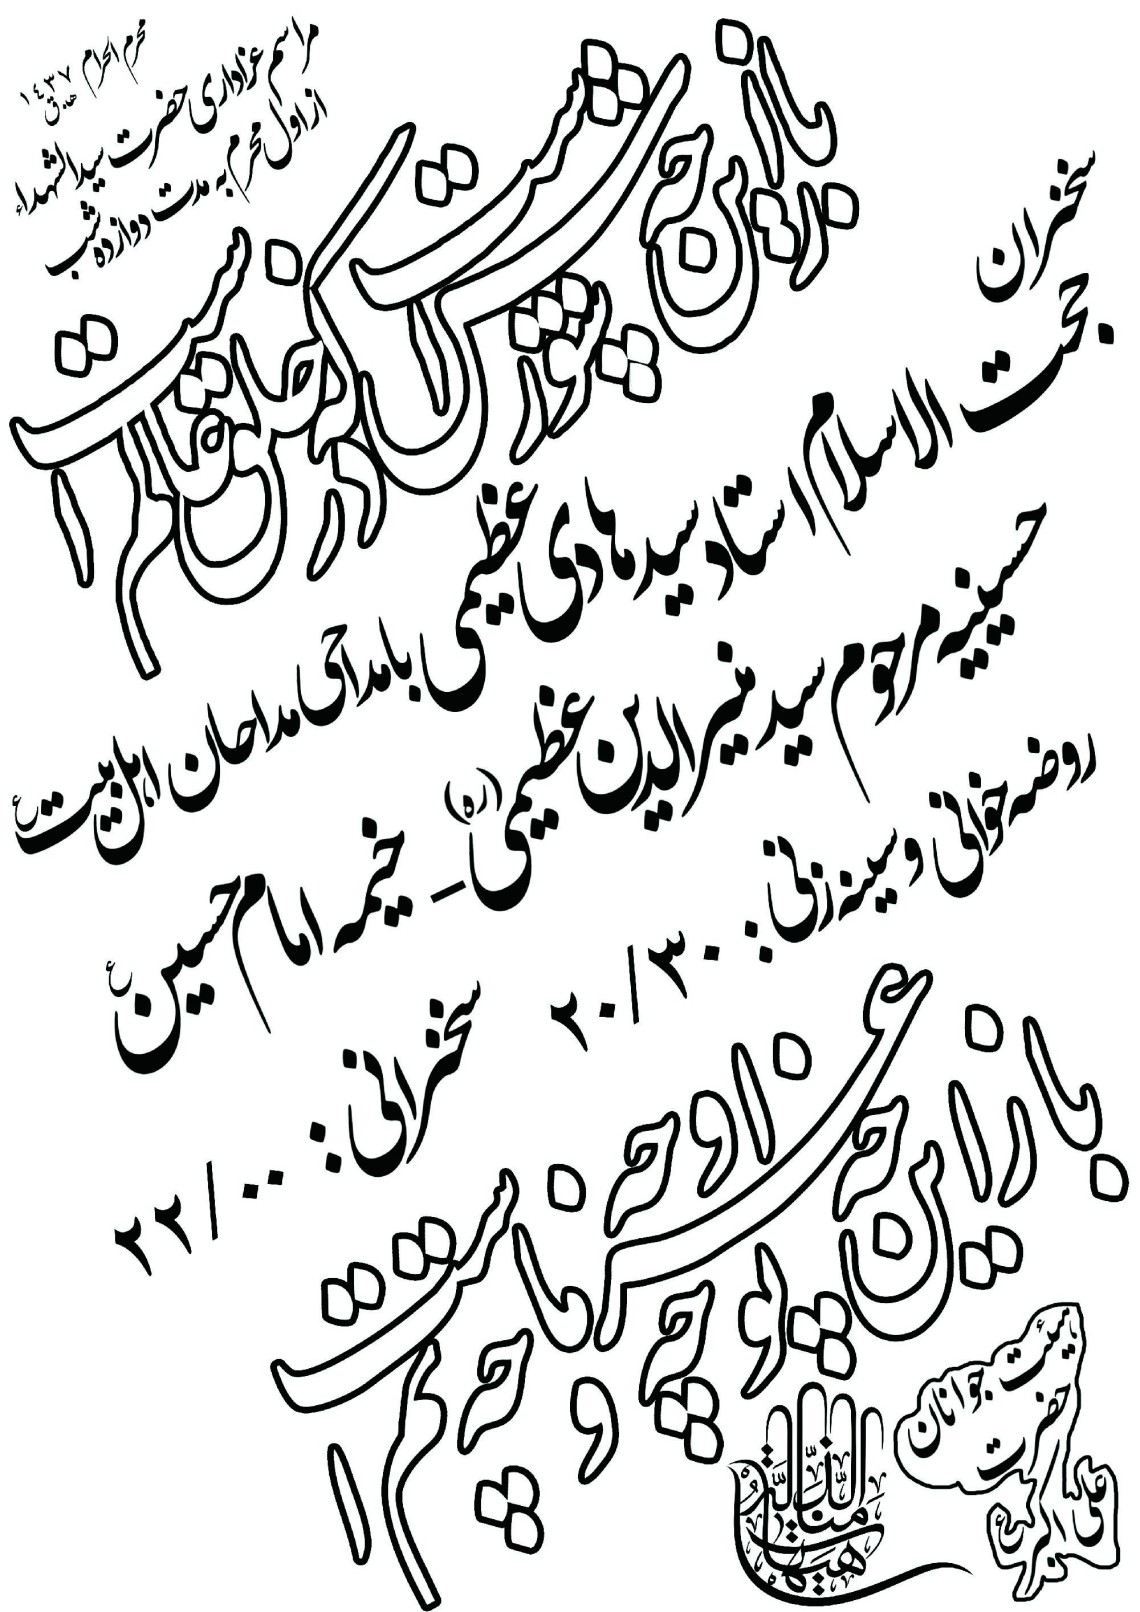 محرم الحرام ۱۴۳۷ هـ.ق
مراسم عزاداری حضرت سیدالشهداء
از اول محرم به مدت دوازده شب
باز این چه شورش است که در خلق عالم است
سخنران
حجت الاسلام استاد سید هادی عظیمی با مداحی مداحان اهل بیت ع
حسینیه مرحوم سید منیرالدین عظیمی (ره) - خیمه امام حسین ع
روضه خوانی و سینه زنی: ۲۰/۳۰
سخنرانی: ۲۲/۰۰
باز این چه نوحه و چه عزا و چه ماتم است
هیئت جوانان
حضرت
علی اکبر ع
هیهات
منا الذلة